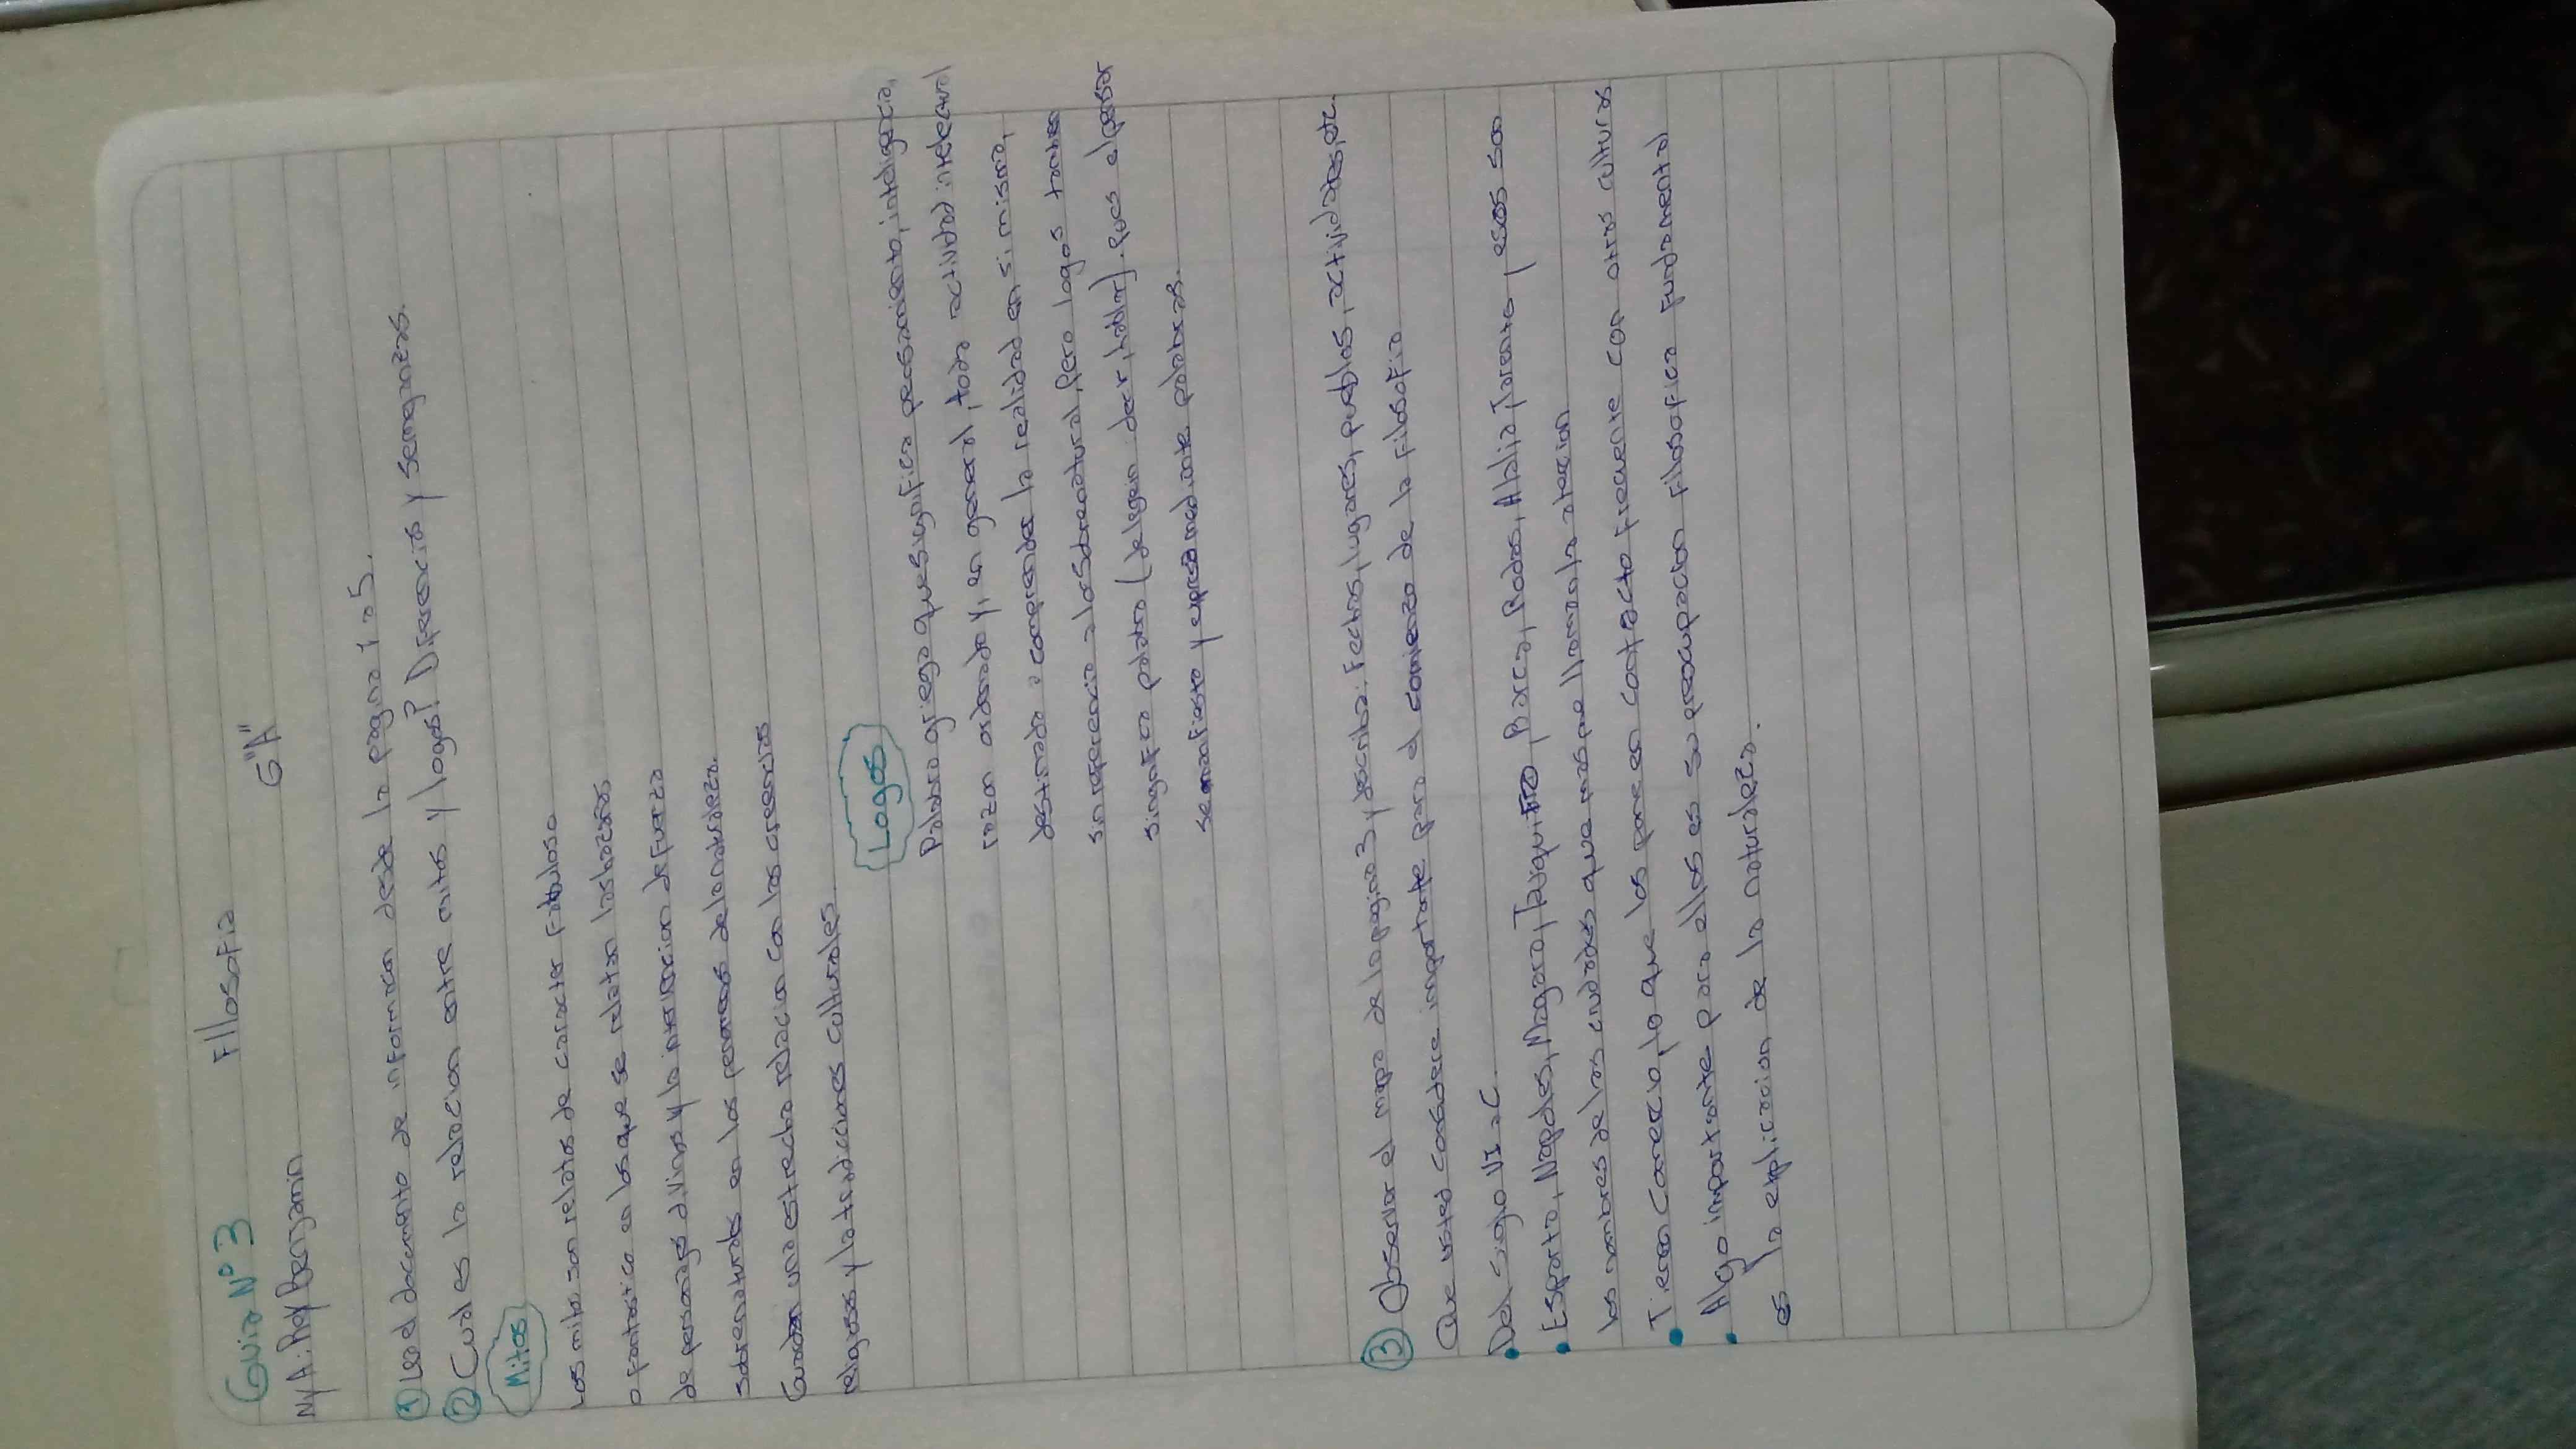 Guia N° 3 Filosofia
NyA: Rey Benjamin 6"A"
① Lea el documento de informacion desde la pagina 1 a 5.
② Cual es la relacion entre mitos y logos? Diferencias y semejanzas.
Mitos
Los mito son relatos de caracter fabuloso
o fantastico en los que se relatan las hazañas
de personajes divinos y la intervencion de fuerza
sobrenaturales en los fenomenos de la naturaleza.
Guardan una estrecha relacion con las creencias
religiosas y las tradiciones culturales.
Logos
Palabra griega que significa pensamiento, inteligencia,
razon ordenada y, en general, toda actividad intelectual
destinada a comprender la realidad en si misma,
sin referencia a lo sobrenatural, Pero logos tambien
significa palabra (de legein: decir, hablar). Pues el pensar
se manifiesta y expresa mediante palabras.
③ Observar el mapa de la pagina 3 y describa: Fechas, lugares, pueblos, actividades, etc.
Que usted considere importante para el comienzo de la filosofia
• Del siglo VI a.C
• Esparta, Napoles, Magara, Tarquitia, Barca, Rodas, Atalia, Tarento, esos son
los nombres de las ciudades que mas me llaman la atencion
• Tienen Comercio, lo que los pone en contacto frecuente con otras culturas
• Algo importante para ellos es su preocupacion filosofica fundamental
es la explicacion de la naturaleza.